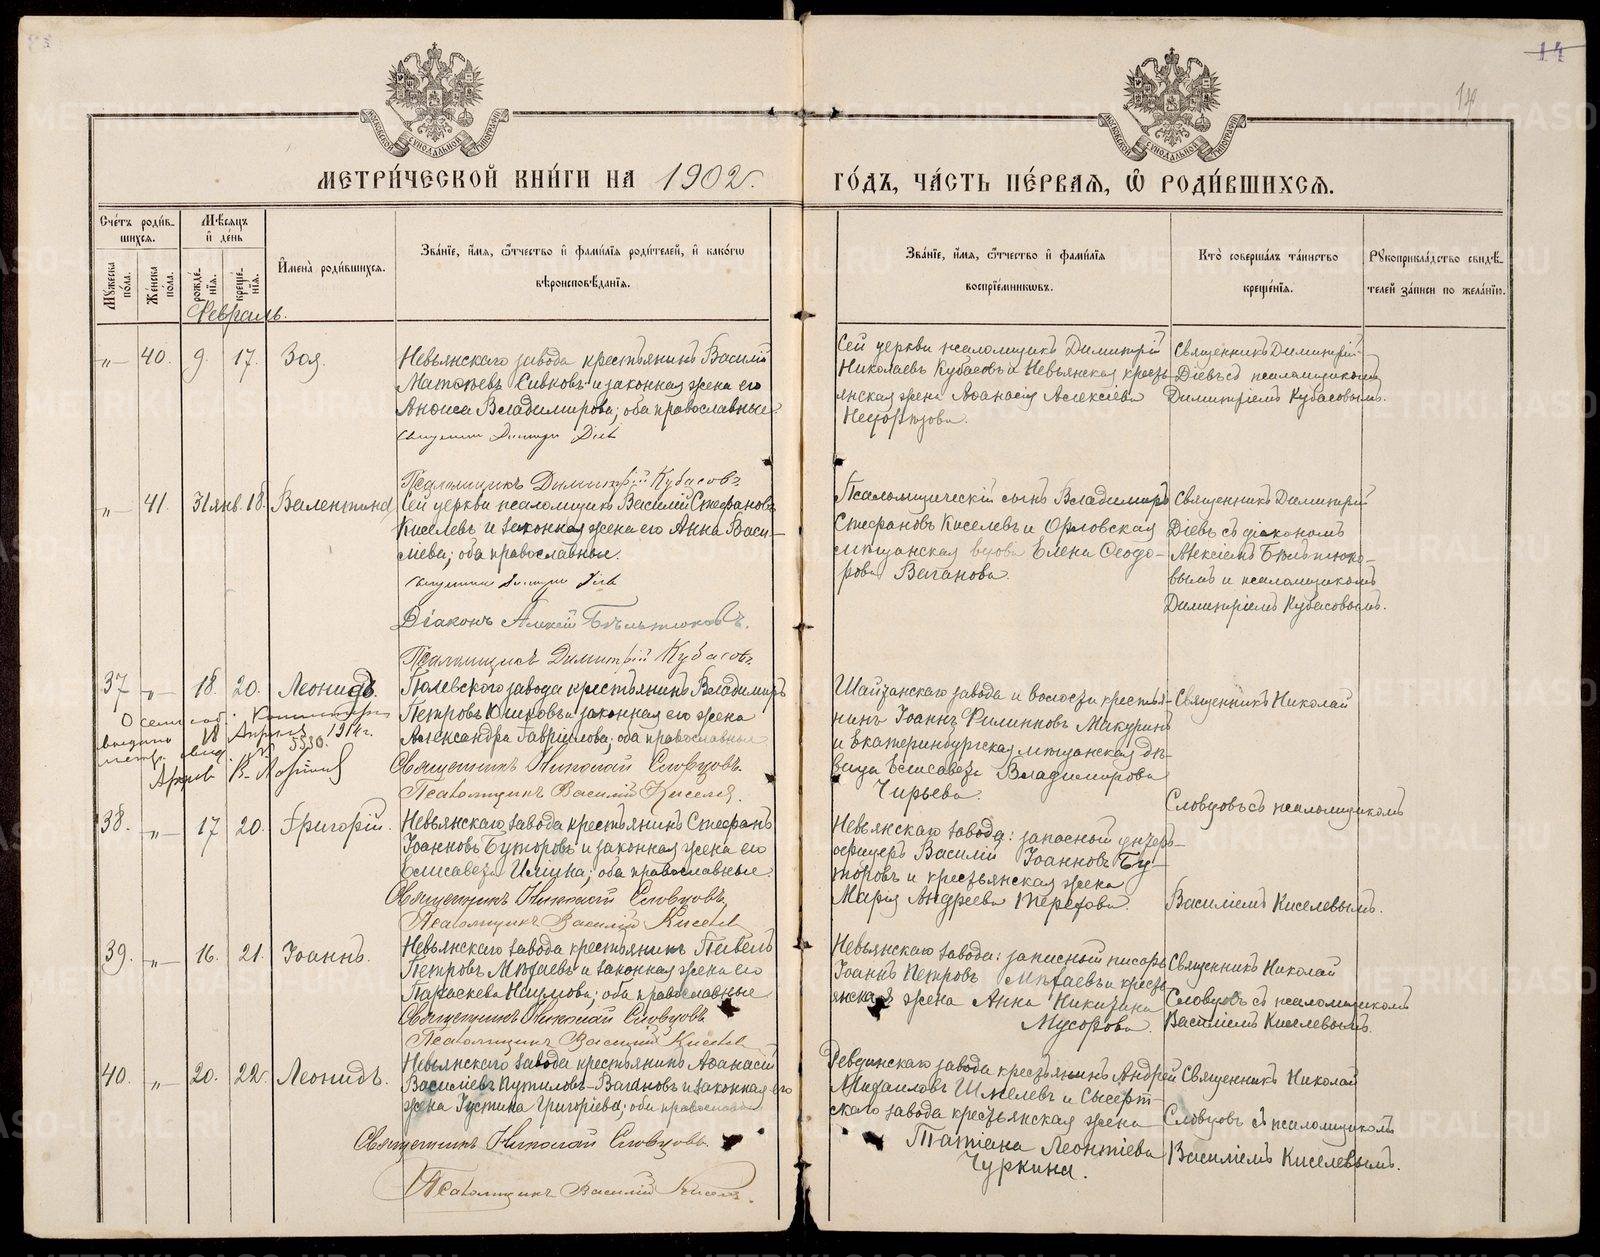 14
МЕТРИ́ЧЕСКОЙ КНИ́ГИ НА 1902 г.
ГО́ДЪ, ЧА́СТЬ ПЕ́РВАѦ, Ѡ҆ РОДИ́ВШИХСѦ.
Счéтъ роди́в-
шихсѧ.
Мѣ́сѧцъ
и҆ де́нь
Мꙋ́жеска по́ла.
Же́нска по́ла.
рожде́-
нїѧ.
креще́-
нїѧ.
И҆мена̀ роди́вшихсѧ.
Зва́нїе, и҆́мѧ, ѻ҆́тчество и҆ фами́лїѧ роди́телей, и҆ како́гѡ
вѣроисповѣ́данїѧ.
Зва́нїе, и҆́мѧ, ѻ҆́тчество и҆ фами́лїѧ
воспрїе́мникѡвъ.
Кто̀ соверша́лъ та́инство
креще́нїѧ.
Рꙋкоприкла́дство свидѣ́-
телей за́писи по жела́нїю.
Февраль.
„ 40. 9. 17. Зоя.
Невьянскаго завода крестьянинъ Василій
Матѳеевъ Сивковъ и законная жена его
Анѳиса Владимирова; оба православные
Священникъ Димитрій Діевъ
Псаломщикъ Димитрій Кубасовъ
Сей церкви псаломщикъ Димитрій
Николаевъ Кубасовъ и Невьянская кресть-
янская жена Аѳанасія Алексіева
Священникъ Димитрій
Діевъ съ псаломщикомъ
Димитріемъ Кубасовымъ.
„ 41. 31 янв. 18. Валентина
Сей церкви псаломщикъ Василій Стефановъ
Киселевъ и законная жена его Анна Васи-
ліева; оба православные.
Священникъ Димитрій Діевъ
Діаконъ Алексій Бѣльтюковъ.
Псаломщикъ Димитрій Кубасовъ
Псаломщическій сынъ Владимиръ
Стефановъ Киселевъ и Орловская
мѣщанская вдова Елена Ѳеодо-
рова Ваганова.
Священникъ Димитрій
Діевъ съ діакономъ
Алексіемъ Бѣльтюко-
вымъ и псаломщикомъ
Димитріемъ Кубасовымъ.
37 „ 18. 20. Леонидъ.
выдано 18 Апрѣля 1914 г.
метр. свид. № 5530.
Тюлевского завода крестьянинъ Владимиръ
Петровъ Юшковъ и законная его жена
Александра Гавріилова; оба православные
Священникъ Николай Словцовъ.
Псаломщикъ Василій Киселевъ.
Шайтанскаго завода и волости крестья-
нинъ Іоаннъ Филипповъ Макуринъ
и Екатеринбургская мѣщанская дѣ-
вица Елисавета Владимирова
Чирьева.
Священникъ Николай
Словцовъ съ псаломщикомъ
Василіемъ Киселевымъ.
38. „ 17 20. Григорій.
Невьянскаго завода крестьянинъ Стефанъ
Іоанновъ Буторовъ и законная жена его
Елисавета Иліина; оба православные.
Священникъ Николай Словцовъ.
Псаломщикъ Василій Киселевъ
Невьянскаго завода: запасный унтеръ-
офицеръ Василій Іоанновъ Бу-
торовъ и крестьянская жена
Марія Андреева Терехова.
39. „ 16. 21. Іоаннъ.
Невьянскаго завода крестьянинъ Павелъ
Петровъ Мѣхаевъ и законная жена его
Параскева Наумова; оба православные
Священникъ Николай Словцовъ
Псаломщикъ Василій Киселевъ
Невьянскаго завода: запасный писарь
Іоаннъ Петровъ Мѣхаевъ и кресть-
янская жена Анна Никитина
Мусорова.
Священникъ Николай
Словцовъ съ псаломщикомъ
Василіемъ Киселевымъ.
40. „ 20. 22 Леонидъ.
Невьянскаго завода крестьянинъ Аѳанасій
Василіевъ Путиловъ-Вагановъ и законная его
жена Іустина Григоріева; оба православные
Священникъ Николай Словцовъ
Псаломщикъ Василій Киселевъ.
Ревдинскаго завода крестьянинъ Андрей
Михаиловъ Шмелевъ и Сысерт-
скаго завода крестьянская жена
Татіана Леонтіева
Чуркина.
Священникъ Николай
Словцовъ съ псаломщикомъ
Василіемъ Киселевымъ.